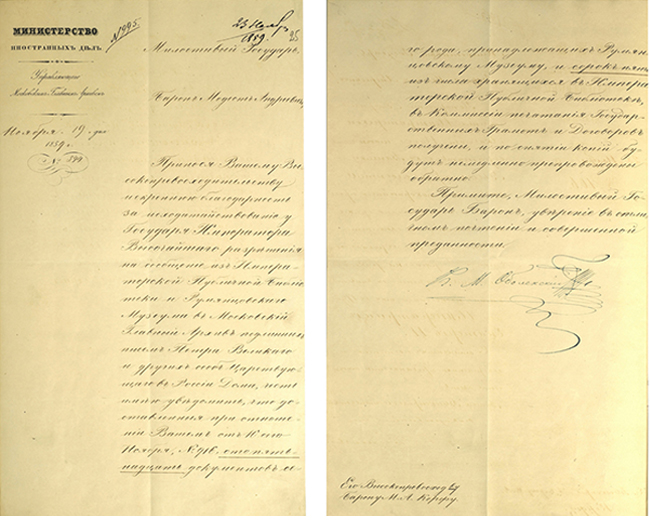 МИНИСТЕРСТВО
ИНОСТРАННЫХЪ ДѢЛЪ.
Управляющiй
Московскимъ Главнымъ Архивомъ
Ноября 19 дня
1859 г.
№ 799
№995.
23 Нояб.
1859.
Милостивый Государь,
Баронъ Модестъ Андреевичъ,
Принося Вашему Вы-
сокопревосходительству
искреннюю благодарность
за исходатайствованiе у
Государя Императора
Высочайшаго разрѣшенiя
на сообщенiе изъ Импера-
торской Публичной Библiо-
теки и Румянцовскаго
Музеума въ Московскiй
Главный Архивъ подлинныхъ
писемъ Петра Великаго
и другихъ особъ Царствую-
щаго въ Россiи Дома, честь
имѣю увѣдомить, что до-
ставленныя при отноше-
нiи Вашемъ отъ 10 сего
Ноября, № 916, сто пять-
надцать документовъ се-
го рода, принадлежащихъ Румян-
цовскому Музеуму, и сорокъ пять
изъ числа хранящихся въ Импера-
торской Публичной Библiотекѣ,
въ Коммисiи печатанiя Государ-
ственныхъ Грамотъ и Договоровъ
получены, и по снятiи копiй бу-
дутъ немедленно препровождены
обратно.
Примите, Милостивый Го-
сударь Баронъ, увѣренiе въ отли-
чномъ почтенiи и совершенной
преданности.
К. М. Оболенскiй
Его Высокопревосход-ву
Барону М. А. Корфу.